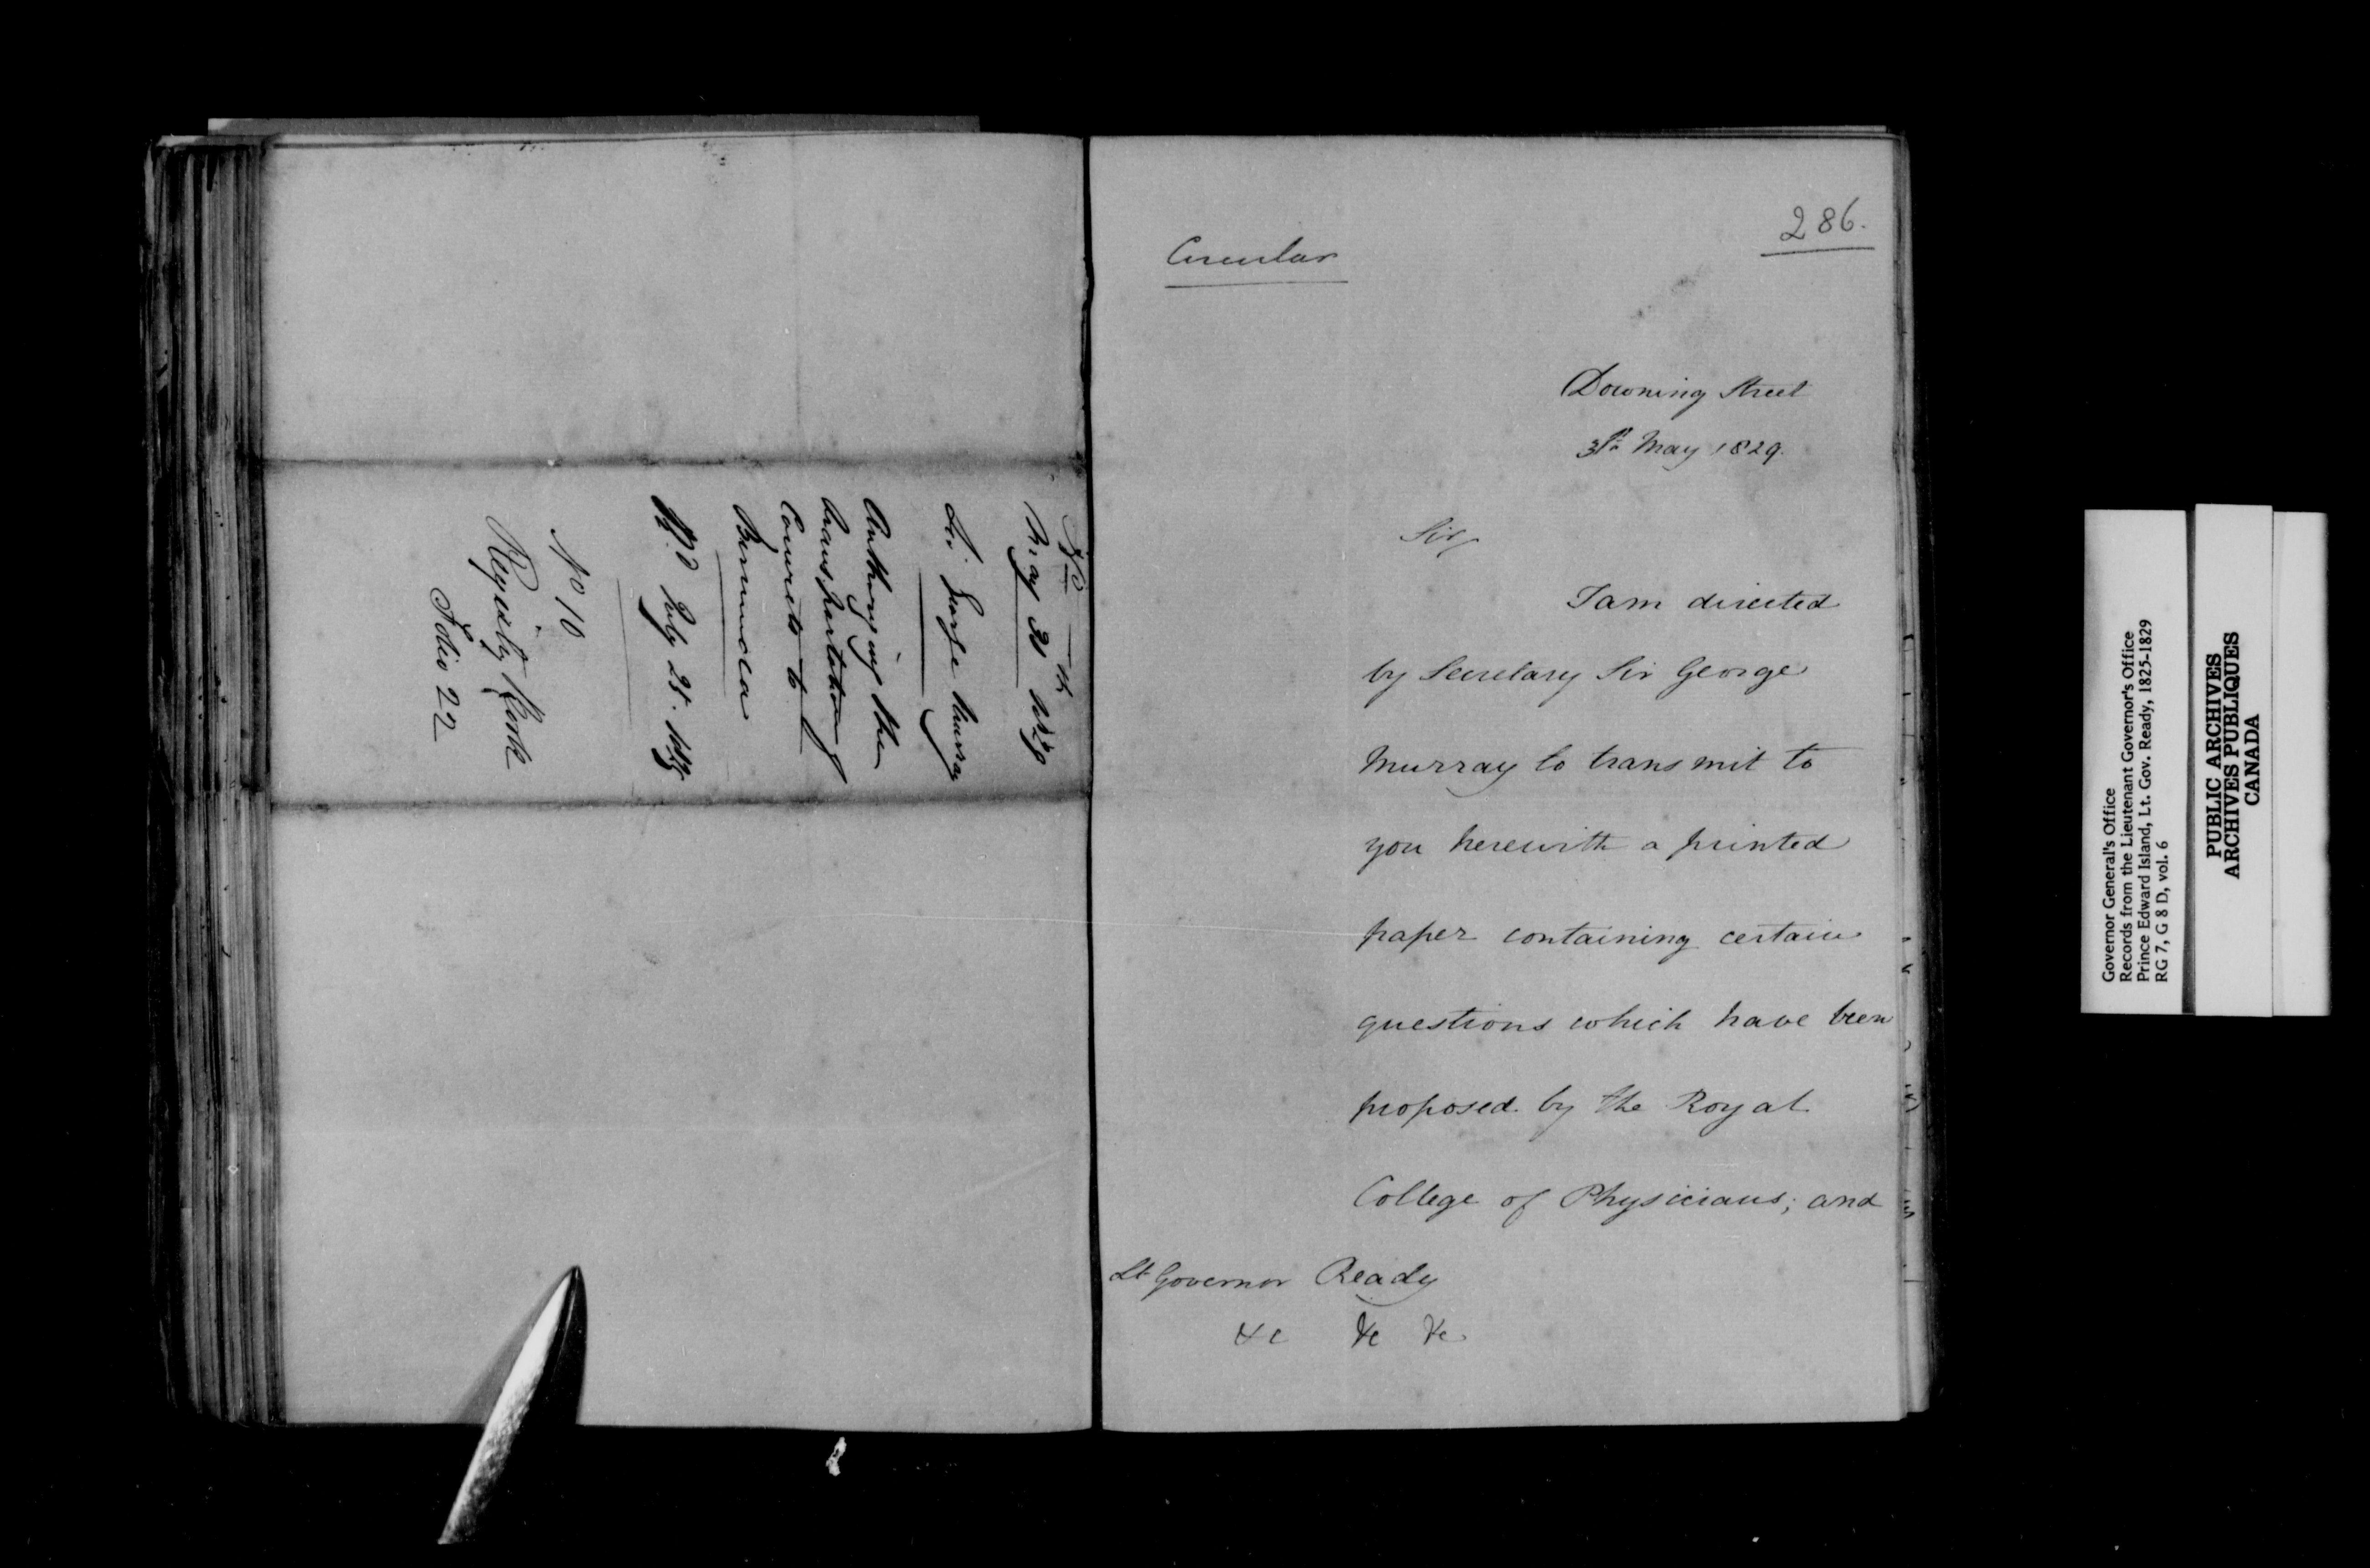 May 30th 1829
Sir George Murray
Authorizing the
transportation of
Convicts to
Bermuda
Rd. July 25. 1829
No 10
Registry Book
Folio 22
286.
Circular
Downing Street
31st May 1829.
Sir,
I am directed
by Secretary Sir George
Murray to transmit to
you herewith a printed
paper containing certain
questions which have been
proposed by the Royal
College of Physicians; and
Lt Governor Ready
&c &c &c
Governor General's Office
Records from the Lieutenant Governor's Office
Prince Edward Island, Lt. Gov. Ready, 1825-1829
RG 7, G 8 D, vol. 6
PUBLIC ARCHIVES
ARCHIVES PUBLIQUES
CANADA